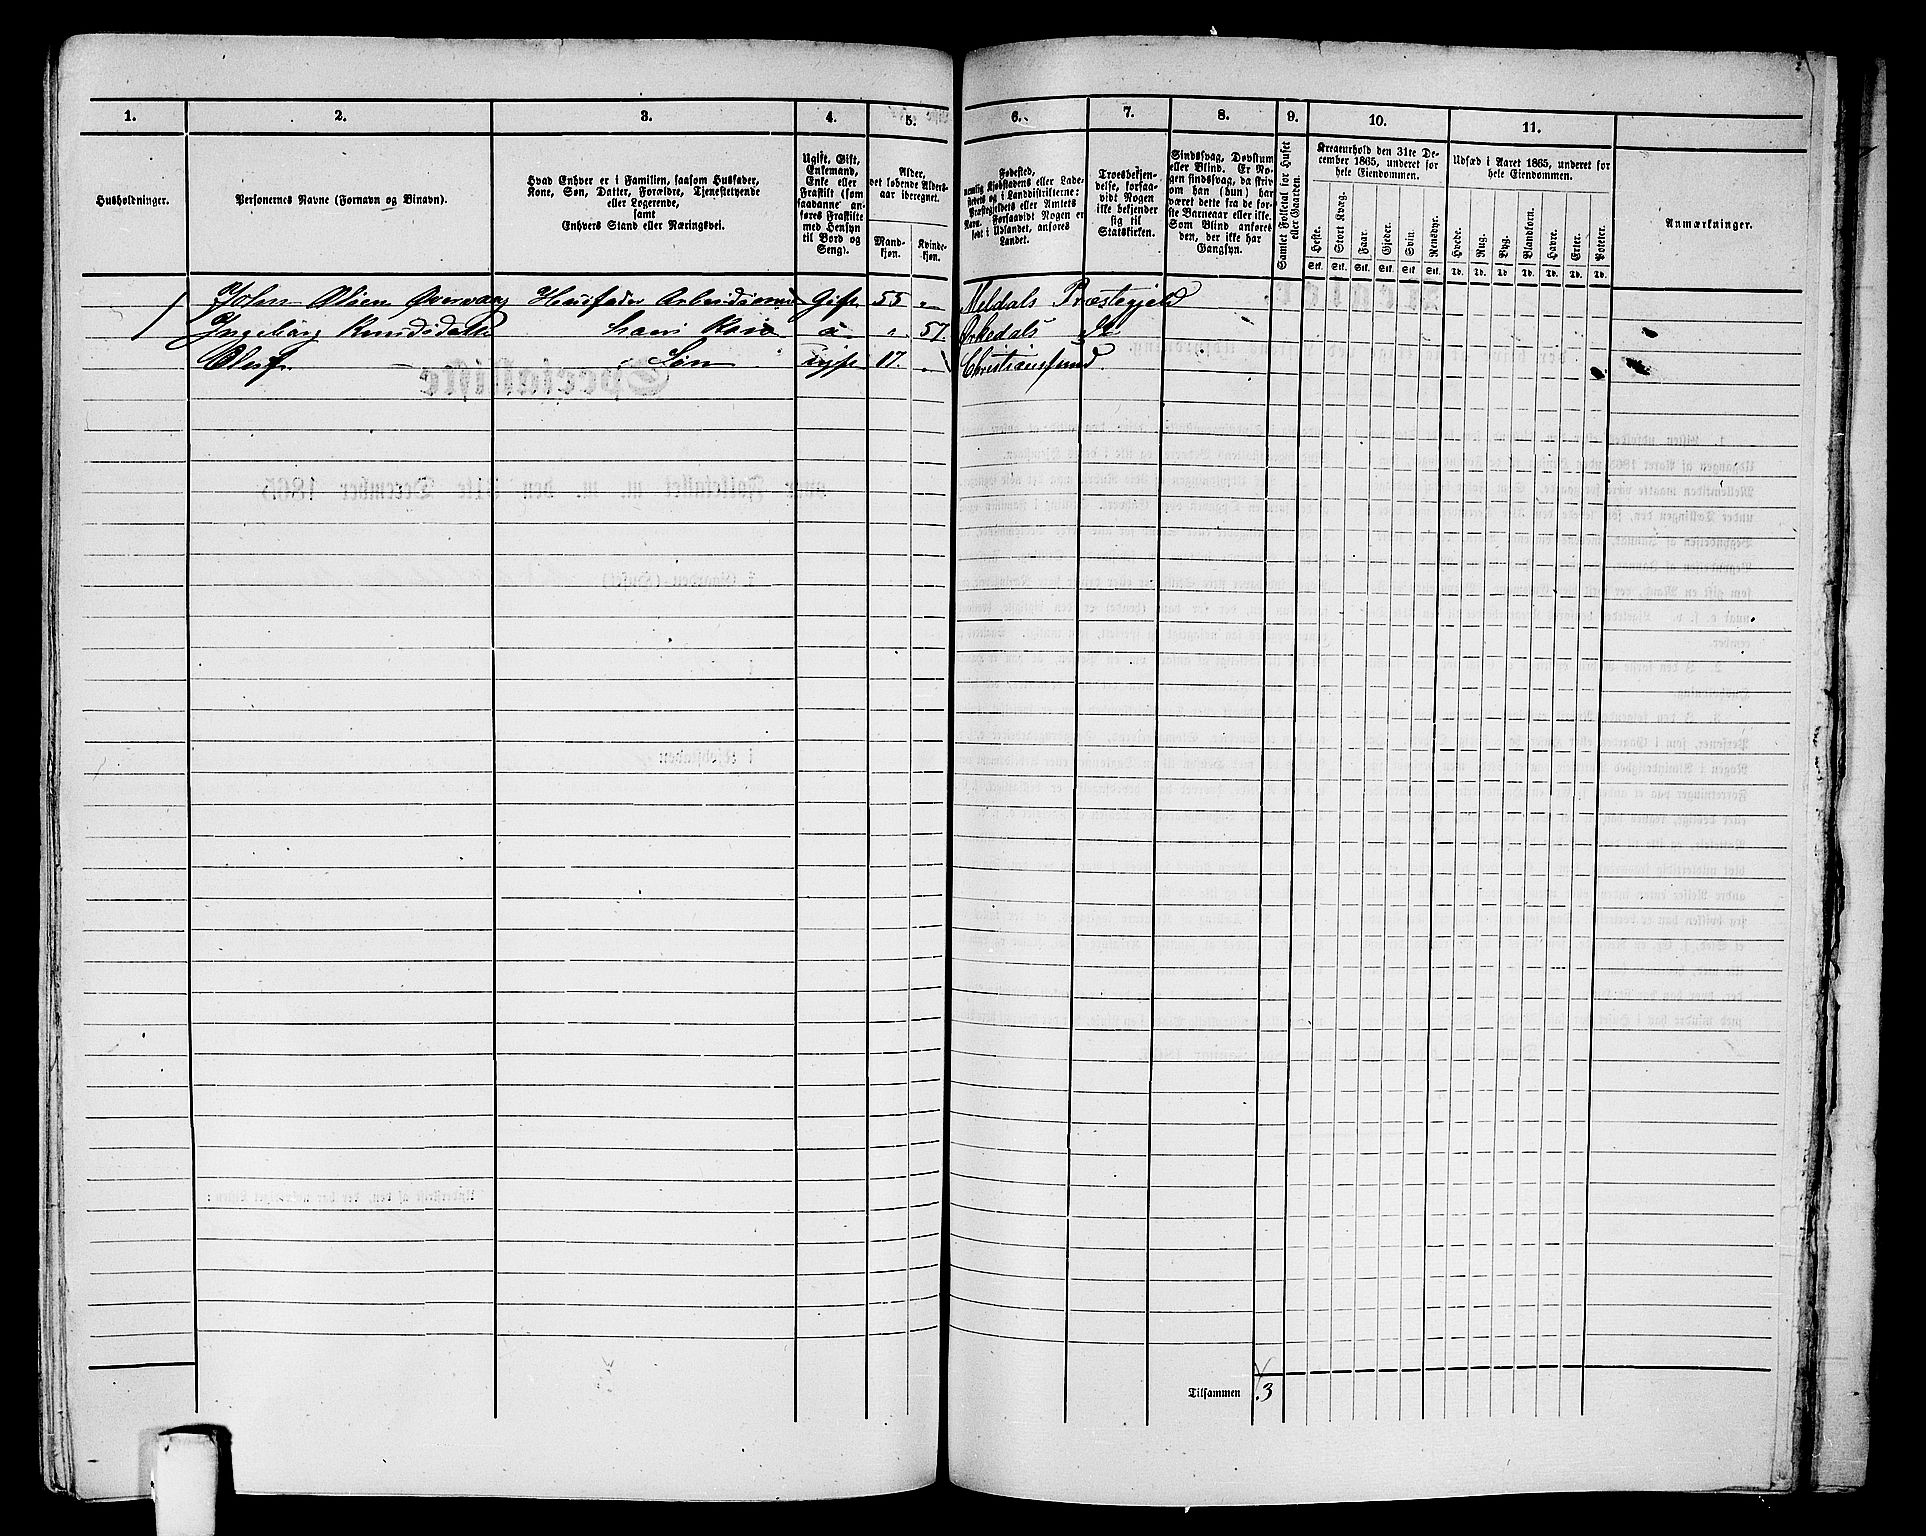 1. 2. 3. 4. 5. 6. 7. 8. 9. 10. 11.
Husholdninger.
Personernes Navne (Fornavn og Binavn).
Hvad Enhver er i Familien, saasom Husfader,
Kone, Søn, Datter, Forældre, Tjenestetyende
eller Logerende,
samt
Enhvers Stand eller Næringsvei.
Ugift, Gift,
Enkemand,
Enke eller
Fraskilt (som
saadanne an-
føres Fraskilte
med Hensyn
til Bord og
Seng).
Alder,
det løbende Alders-
aar iberegnet.
Mand-
kjøn.
Kvinde-
kjøn.
Fødested,
nemlig Kjøbstadens eller Lade-
stedets og i Landdistrikterne:
Præstegjeldets eller Amtets
Navn. Forsaavidt Nogen er
født i Udlandet, anføres
Landet.
Troesbekjen-
delse, forsaa-
vidt Nogen
ikke bekjender
sig til
Statskirken.
Sindssvag, Døvstum
eller Blind. Er No-
gen sindssvag, da skriv
om han (hun) har
været dette fra de før-
ste Barneaar eller ikke.
Som Blind anføres
den, der ikke har
Gangsyn.
Samlet Folketal for Huset
eller Gaarden.
Kreaturhold den 31te De-
cember 1865, underet for
hele Eiendommen.
Heste. Stort Kvæg. Faar. Gjeder. Svin. Rensdyr.
Stk. Stk. Stk. Stk. Stk. Stk.
Udsæd i Aaret 1865, underet for
hele Eiendommen.
Hvede. Rug. Byg. Blandkorn. Havre. Erter. Poteter.
Td. Td. Td. Td. Td. Td. Td.
Anmærkninger.
John Olsen Husfader Gift 55 " Meldals Præstegjeld
Ingebørg Knudsdatter hans Kone " 57. Orkedals
Oluf — Søn Ugift 17. " Christianssund
Tilsammen 3